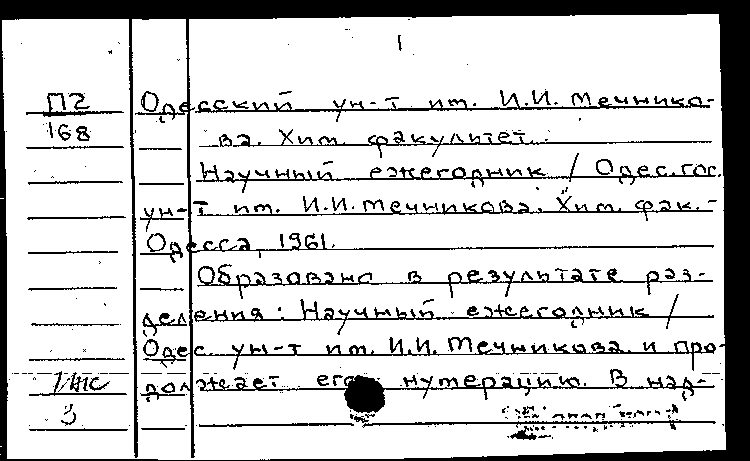 1
П2 Одесский ун-т им. И.И. Мечнико-
168 ва. Хим. факультет.
Научный ежегодник / Одес. гос.
ун-т им. И.И. Мечникова. Хим. фак. -
Одесса, 1961.
Образовано в результате раз-
деления: Научный ежегодник /
Одес. ун-т им. И.И. Мечникова и про-
должает его нумерацию. В над-
3